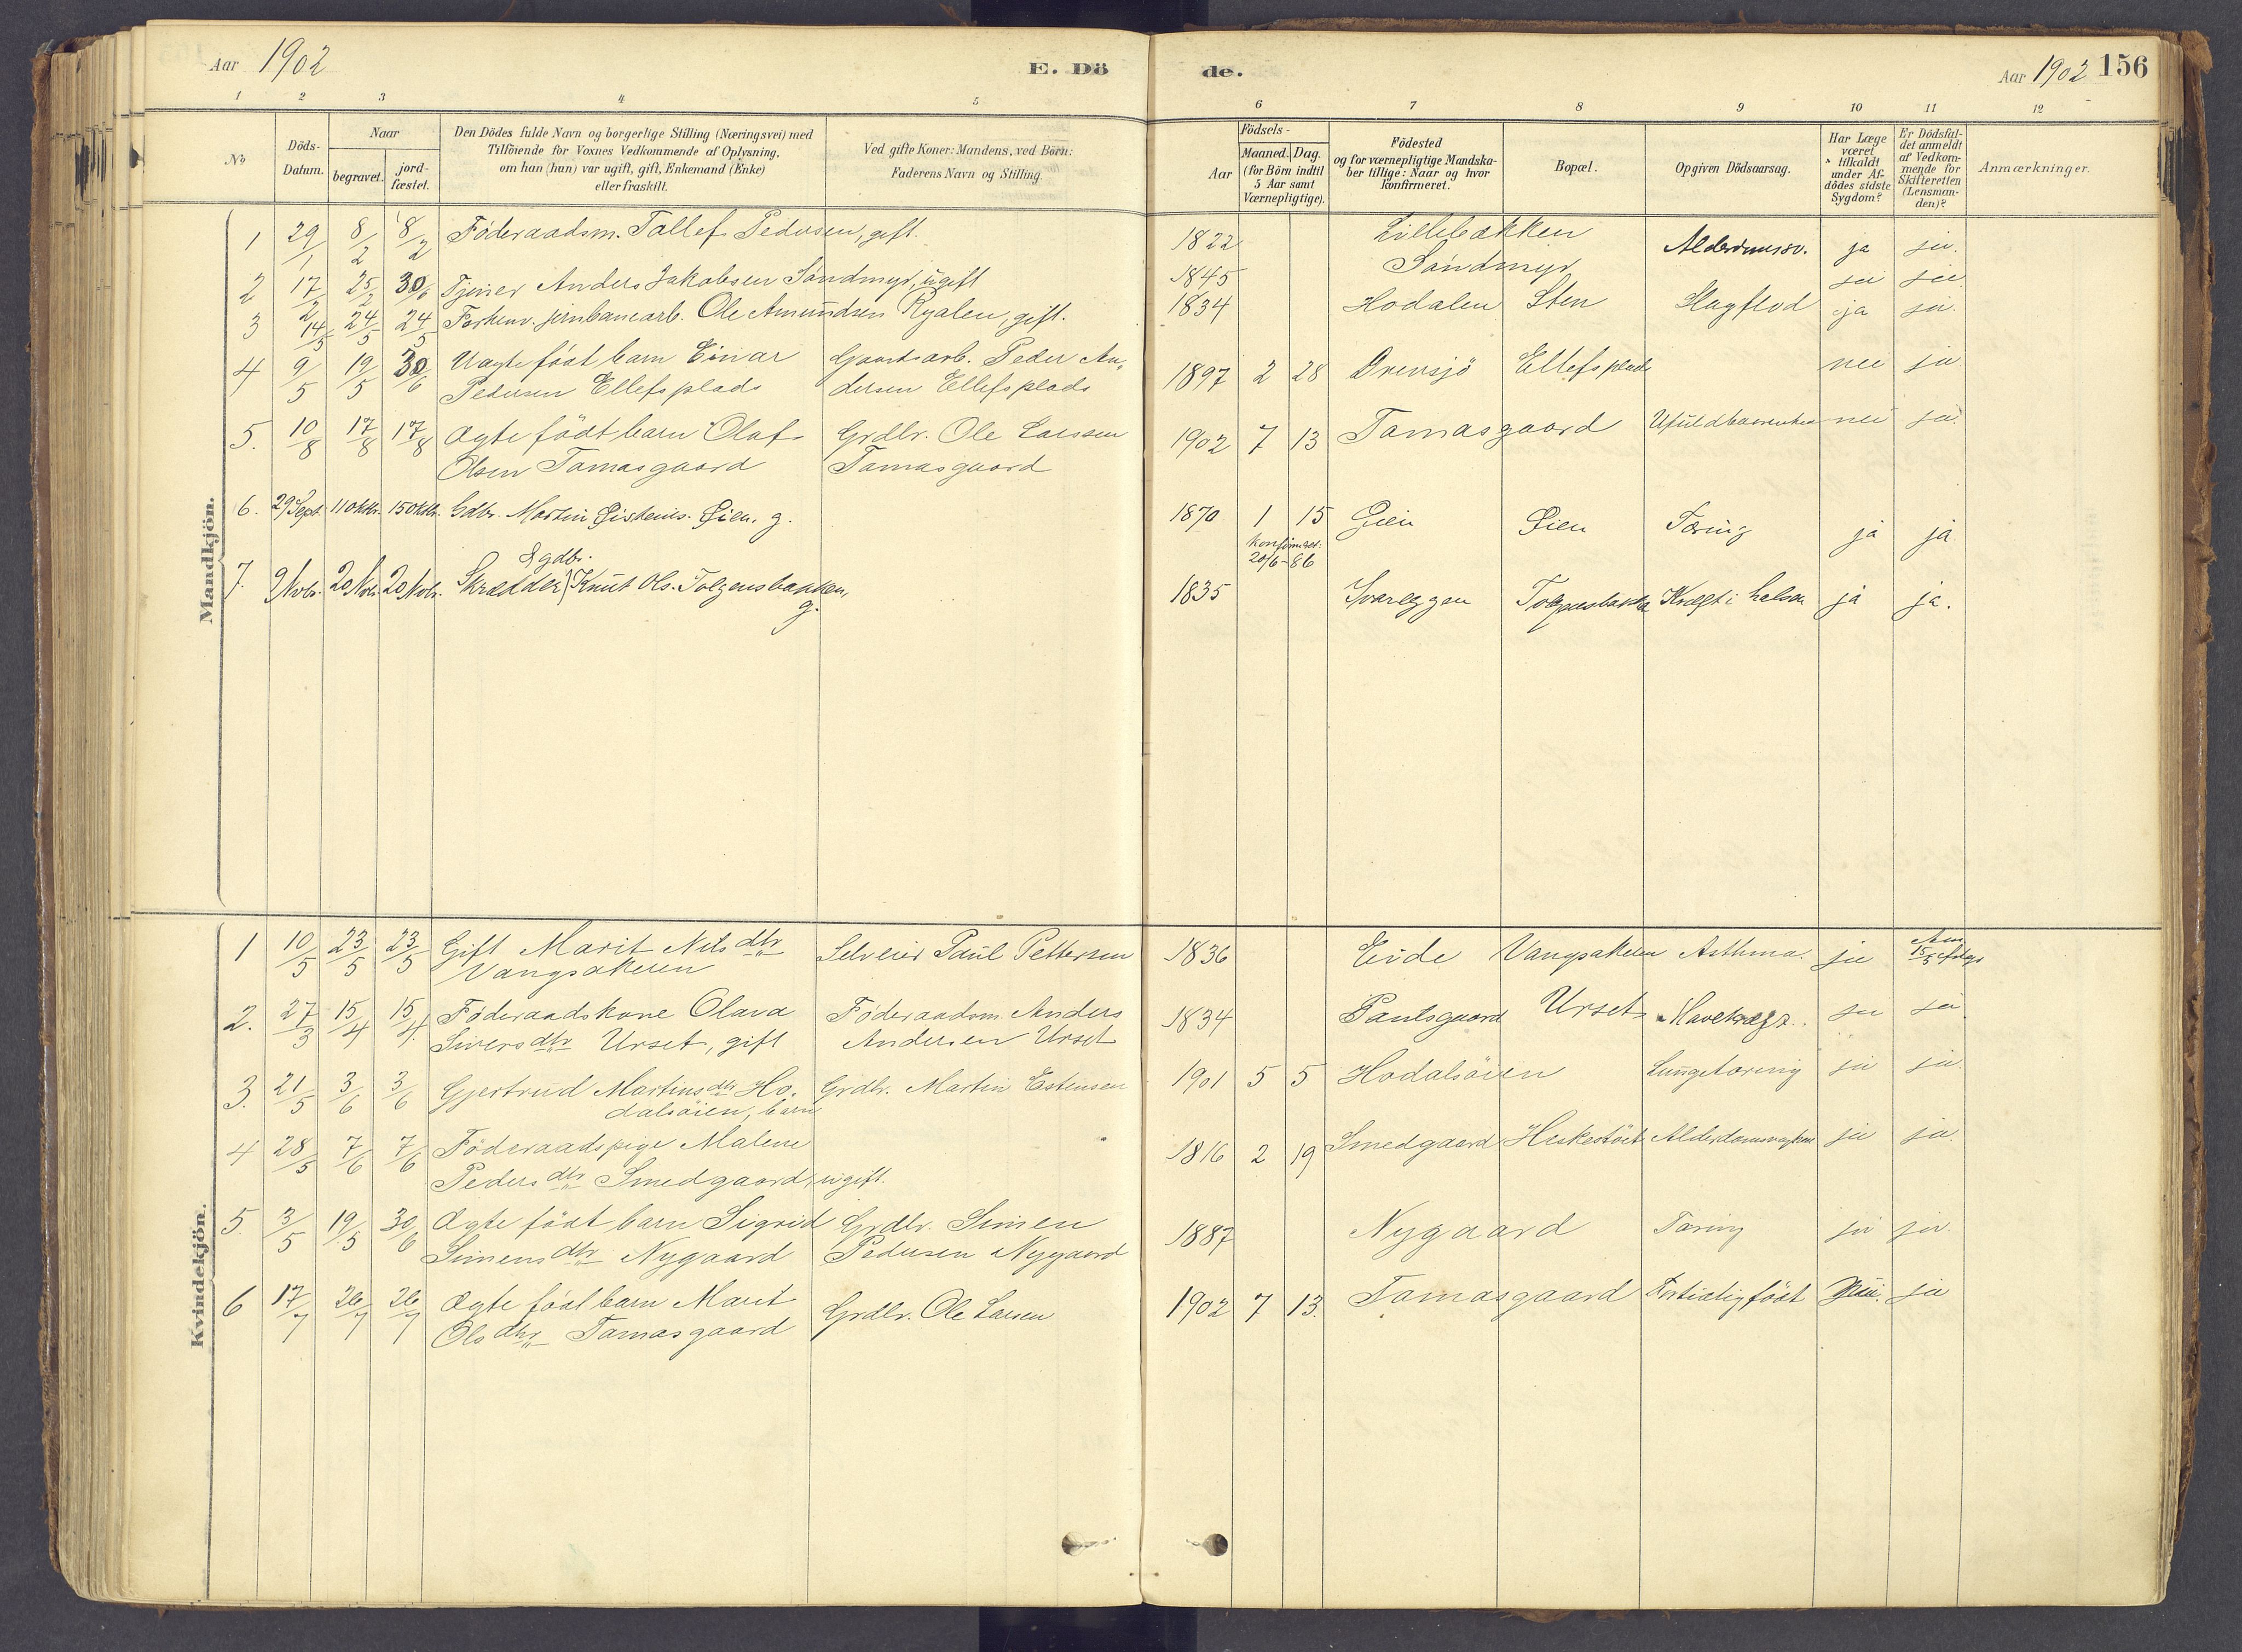 Aar 1902
E. Dö
de.
Aar 1902 156
1 2 3 4 5 6 7 8 9 10 11 12
No
Döds-Datum.
Naar
begravet.
jord-fæstet.
Den Dödes fulde Navn og borgerlige Stilling (Næringsvei) med
Tilföiende for Voxnes Vedkommende af Oplysning,
om han (hun) var ugift, gift, Enkemand (Enke)
eller fraskilt.
Ved gifte Koner: Mandens, ved Börn:
Faderens Navn og Stilling.
Födsels-
Aar
Maaned. Dag.
(for Börn indtil
5 Aar samt
Værnepligtige).
Födested
og for værnepligtige Mandska-
ber tillige: Naar og hvor
konfirmeret.
Bopæl.
Opgiven Dödsaarsag.
Har Læge
været
tilkaldt
under Af-
dödes sidste
Sygdom?
Er Dödsfal-
det anmeldt
af Vedkom-
mende for
Skifteretten
(Lensman-
den)?
Anmærkninger.
Mandkjön.
1 29/1 8/2 8/2 Föderaadsm. Tallef Pedersen, gift. 1822 Lillebakken Alderdomssv. ja ja.
2 17/2 25/2 30/6 Tjener Anders Jakobsen Sandmyr, ugift 1845 Sandmyr
3 14/5 24/5 24/5 Forhenv. jernbanearb. Ole Amundsen Ryalen, gift. 1834 Hodalen Sten Slagflod ja ja.
4 9/5 19/5 30/6 Uægte födt barn Einar Gaardsarb. Peder An- 1897 2 28 Drevsjö Ellefsplads nei ja
Pedersen Ellefsplads dersen Ellefsplads
5. 10/8 17/8 17/8 Ægte födt barn Olaf Grdbr. Ole Larssen 1902 7 13 Tamasgaard nei ja.
Olsen Tamasgaard Tamasgaard
6. 29 Sept. 11 Oktbr. 15 Oktbr. Gdbr. Martin Øistens. Øien. g. 1870 1 15 Øien Øien Tæring ja ja
konfirmeret:
20/6-86
& gdbr.
7. 9 Novbr. 20 Novbr. 20 Novbr. Skrædder Knut Ols. Tolgensbakken, 1835 Tolgensbakken Kræft i halsen ja ja.
g.
Kvindekjön.
1 10/5 23/5 23/5 Gift Marit Nilsdtr Selveier Paul Pettersen 1836 Eide Vangsakeren Asthma. ja
Vangsakeren
2. 27/3 15/4 15/4. Föderaadskone Olava Föderaadsm. Anders 1834 Paulsgaard Urset Mavekræft. ja ja.
Siversdtr Urset, gift Andersen Urset
3. 21/5 3/6 3/6 Gjertrud Martinsdtr Ho- Grdbr. Martin Estensen 1901 5 5 Hodalsöien Lungetæring ja ja.
dalsöien, barn
4 28/5 7/6 7/6 Föderaadspige Malene 1816 2 19 Smedgaard ja ja.
Pedersdtr Smedgaard, ugift.
5. 3/5 19/5 30/6 Ægte födt barn Sigrid Grdbr. Simen 1887 Nygaard Tæring ja ja.
Simensdtr Nygaard Pedersen Nygaard
6 17/7 26/7 26/7 Ægte födt barn Marit Grdbr. Ole Larsen 1902 7 13. Tamasgaard Fortidlig födt nei. ja
Olsdtr Tamasgaard